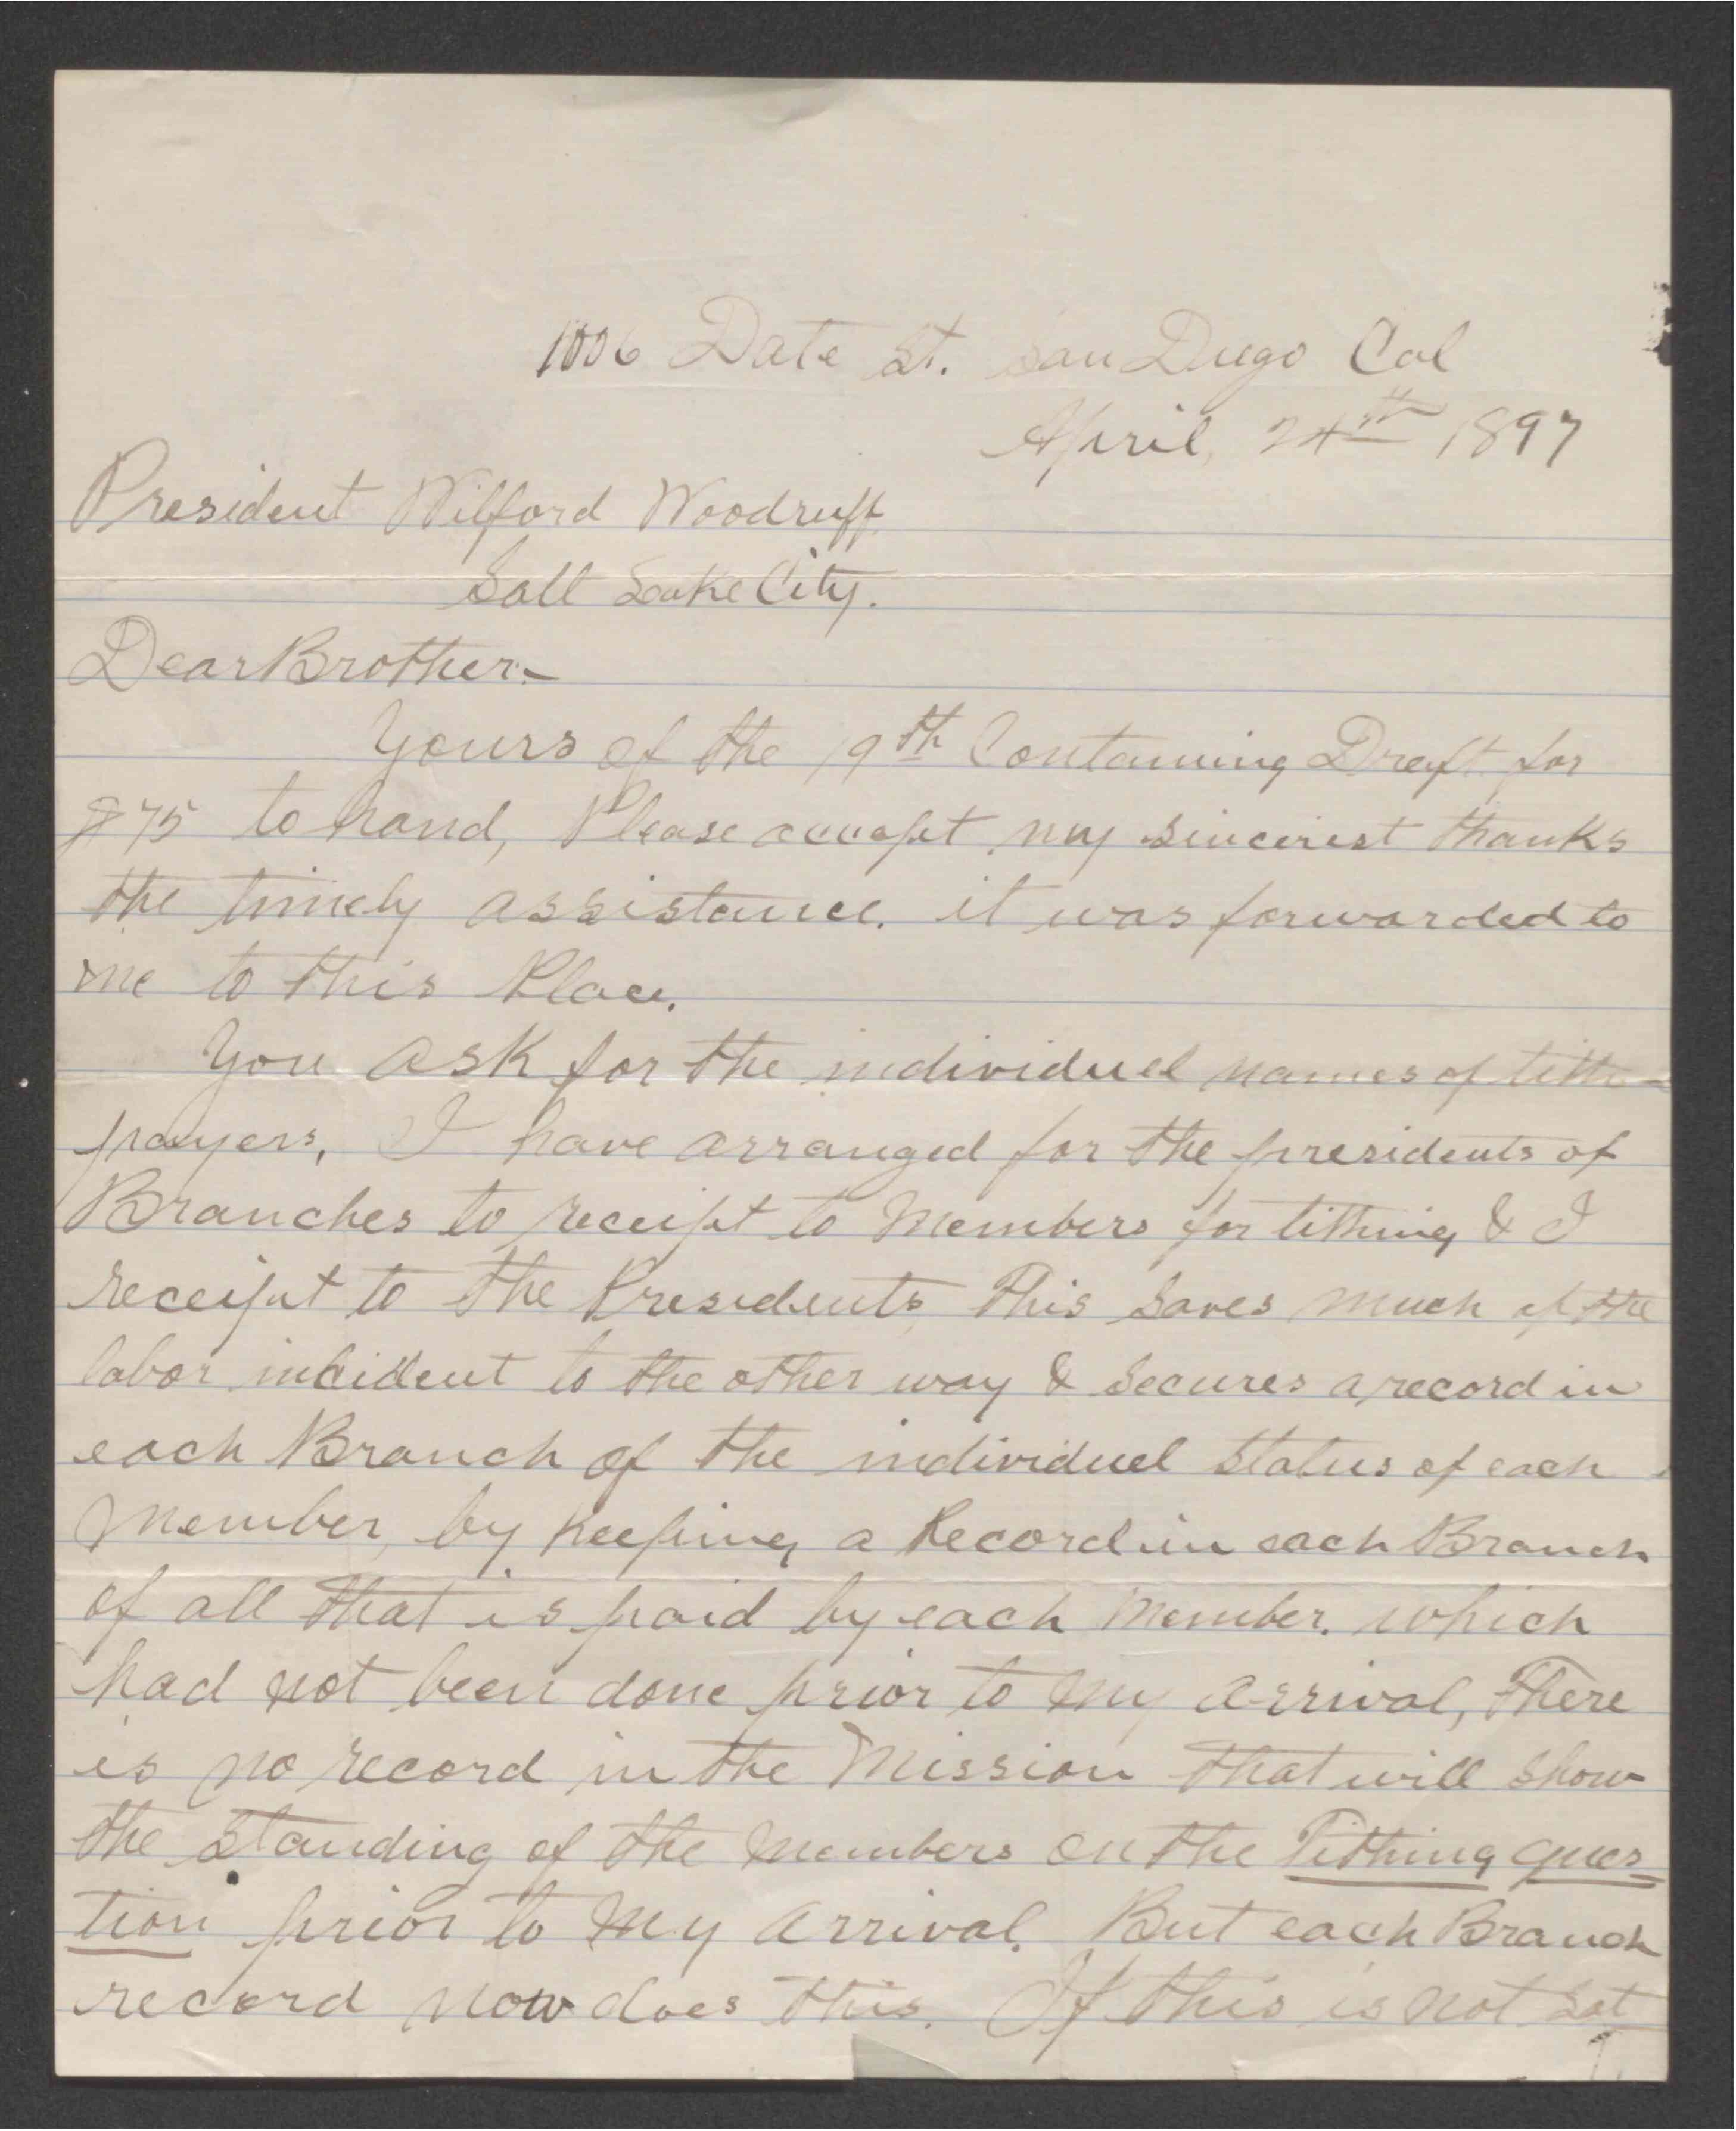 1006 Date St. San Diego Cal
April, 24th 1897
President Wilford Woodruff
Salt Lake City.
Dear Brother:-
Yours of the 19th Containing Draft for
$75 to hand, Please accept my sincerest thanks
the timely assistance. it was forwarded to
me to this Place.
You ask for the individuel names of tithe-
payers, I have arranged for the presidents of
Branches to receipt to Members for tithing & I
receipt to the Presidents, This saves much of the
labor incident to the other way & secures a record in
each Branch of the individuel status of each
Member, by keeping a Record in each Branch
of all that is paid by each member. which
had not been done prior to my arrival, There
is no record in the Mission that will show
the standing of the members on the Tithing ques-
tion prior to my arrival. But each Branch
record now does this. If this is not sat